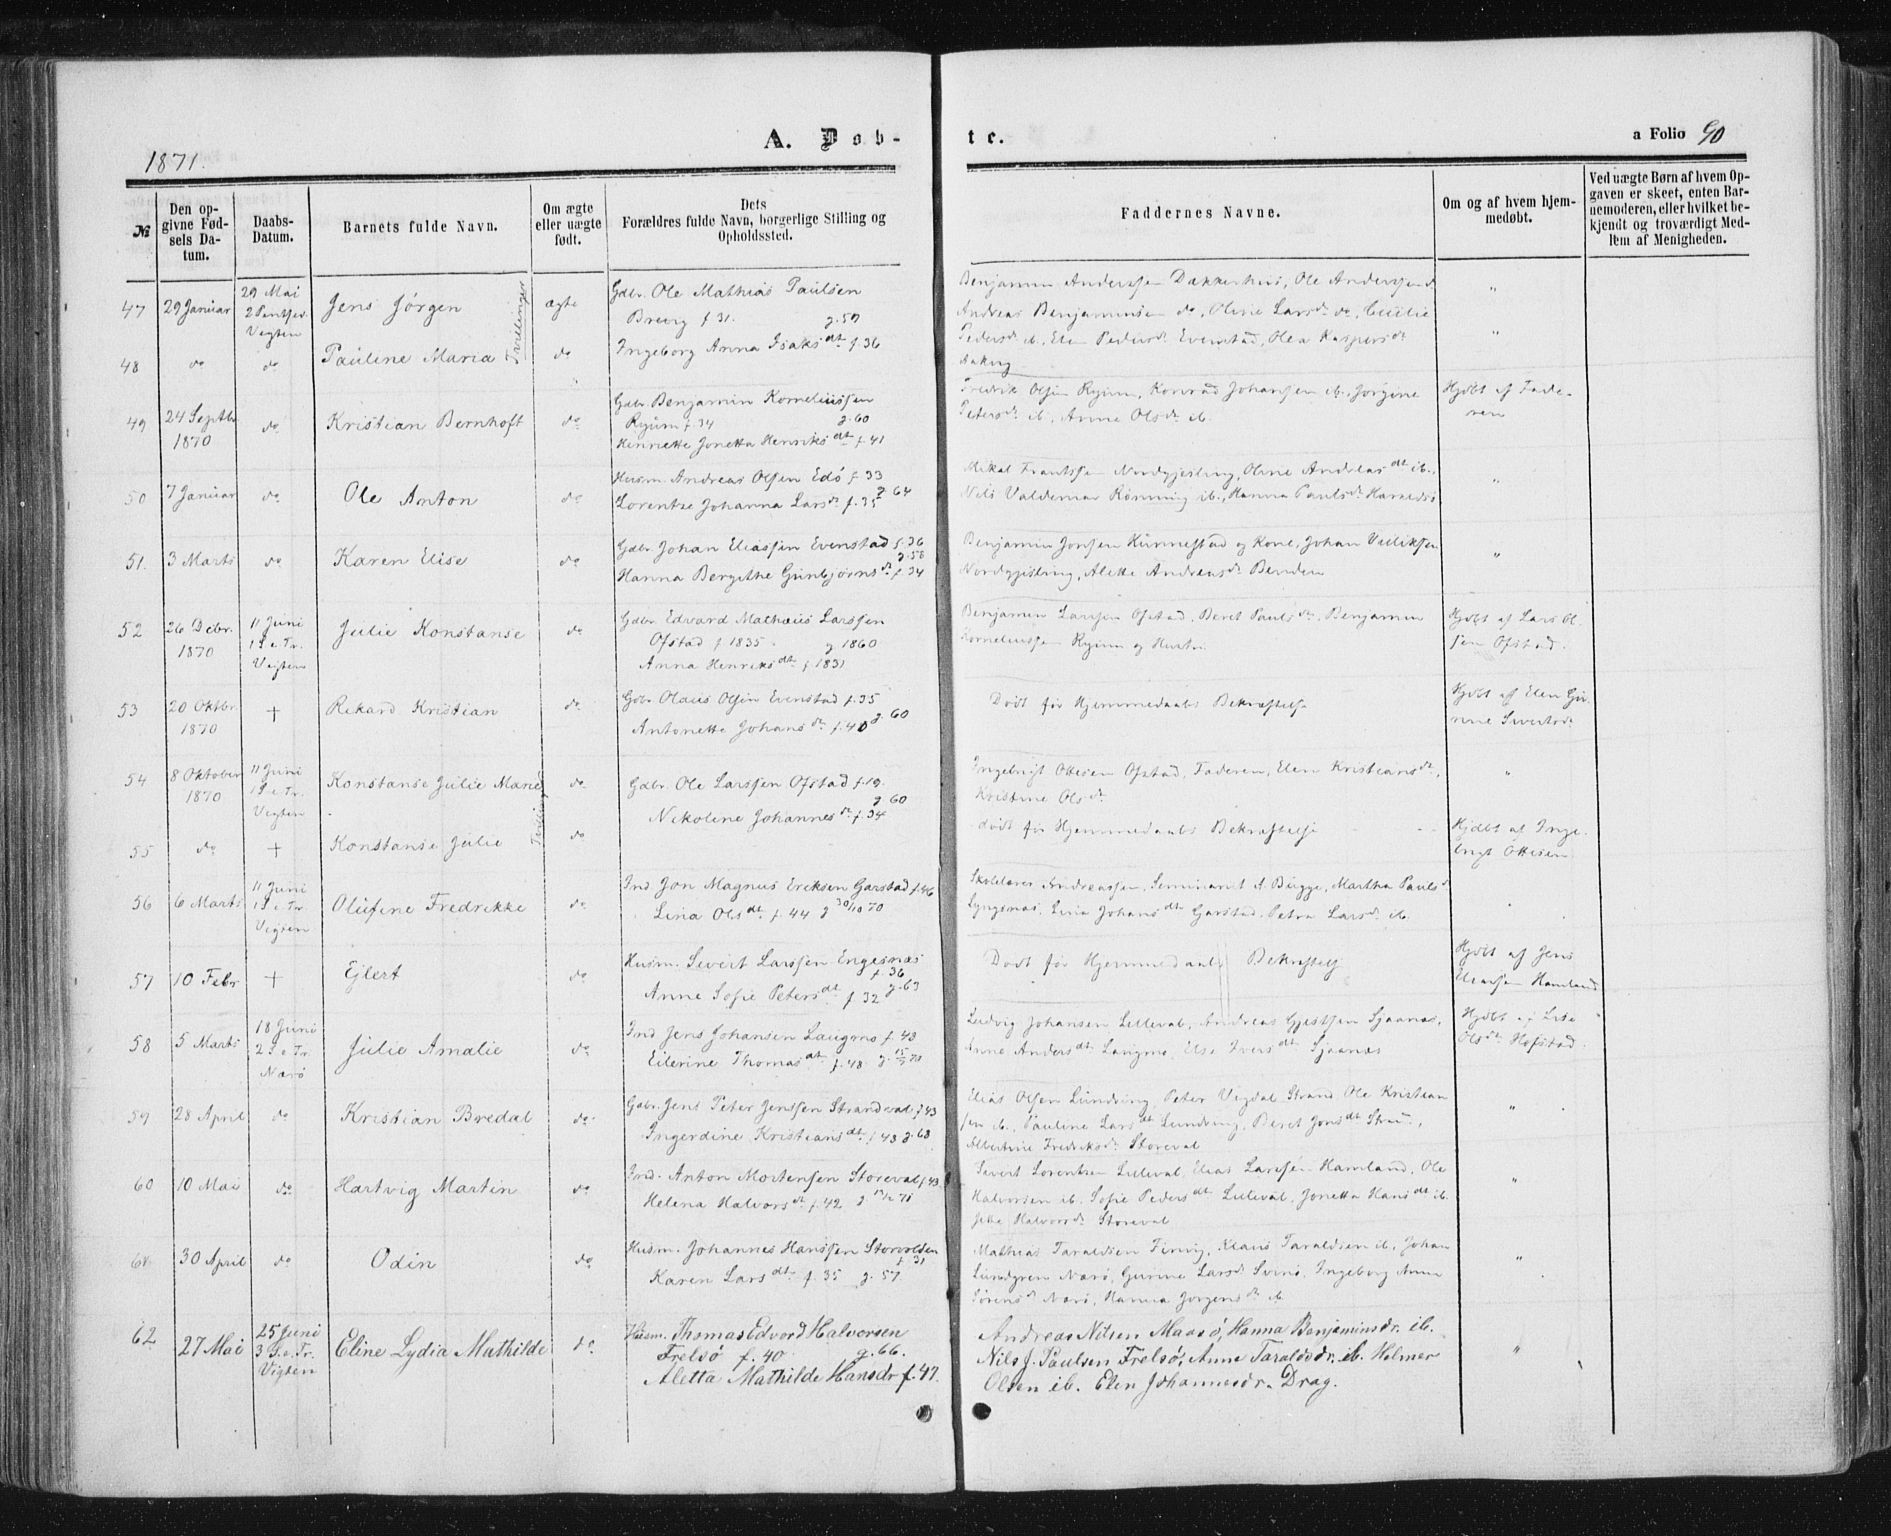 1871.
A. Døb-
te.
a Folio 90
№
Den opgivne Fødsels Datum.
Daabs-Datum.
Barnets fulde Navn.
Om ægte eller uægte født.
Dets Forældres fulde Navn, borgerlige Stilling og Opholdssted.
Faddernes Navne.
Om og af hvem hjemmedøbt.
Ved uægte Børn af hvem Opgaven er skeet, enten Barnemoderen, eller hvilket bekjendt og troværdigt Medlem af Menigheden.
47 29 Januar 29 Mai 2 Pintsed. Vegten Jens Jørgen Tvillinger ægte Gdbr. Ole Mathias Paulsen
Brevig f 31. g. 57
Benjamin Anderssen Dakkerhus, Ole Anderssen do
Andreas Benjaminsen do, Oline Larsd. do, Cecilie
48 do do Pauline Maria do Ingeborg Anna Isaksdt f. 36
Pedersd. ib, Elen Pedersd. Evenstad, Olea Kaspersdt
Aaking
49 24 Septbr 1870 do Kristian Bernhoft do Gdbr. Benjamin Korneliussen
Ryum f. 34 g. 60
Henriette Jonetta Henriksdt f. 41
Fredrik Olsen Ryum, Konrad Johansen ib., Jorgine
Petersd. ib, Anne Olsdr ib.
Hjdbt af Faderen
50 7 Januar do Ole Anton do Husm. Andreas Olsen Edø f. 33
Lorentse Johanna Larsdr f. 35 g 64
Mikal Frantssen Nordgjesling, Oline Andreasdt ib.,
Nils Valdemar Rønning ib., Hanna Paulsdr Haraldsø
51. 3 Marts do Karen Elise do Gdbr. Johan Eliassen Evenstad f. 36
g. 58
Hanna Bergithe Gunbjørnsdr f. 34
Benjamin Jonsen Kunnestad og Kone, Johan
Nordgjesling, Alette Andreasdr Benden
52 26 Debr. 1870 11 Juni 1 S. e. Tr. Vegten Julie Konstanse do Gdbr. Edvard Mathæus Larssen
Ofstad f 1835. g 1860
Anna Henriksdt f. 1831
Benjamin Larssen Ofstad, Beret Paulsdr, Benjamin
Korneliussen Ryum og Hustru
Hjdbt af Lars Olsen Ofstad.
53 20 Oktbr. 1870 + Rikard Kristian do Gdbr. Olaus Olsen Evenstad f. 35
Antonette Johansdr f. 40 g. 60
Dødt før Hjemmedaabs Bekræftelse
Hjdbt af Elen Gurine Sivertsdr
54 8 Oktober 1870 11 Juni 1 S. e. Tr. Vegten Konstanse Julie Marie Tvillinger do Gdbr. Ole Larssen Ofstad f. 19.
g 60
Nikoline Johannesdr f. 34
Ingebrigt Ottesen Ofstad, Faderen, Elen Kristiansdt,
Kristine Olsdt
55 do + Konstanse Julie do
dødt før Hjemmedaabs Bekræftelse
Hjdbt af Ingebrigt Ottesen
56 6 Marts 11 Juni 1 S. e. Tr. Vegten Olufine Fredrikke do Ind. Jon Magnus Eriksen Garstad f. 46
Lina Olsdt f. 44 g 30/10 70
Skolelærer Andreassen, Seminarist A. Bugge, Martha Paulsd
Lyngsnæs, Lina Johansdt Garstad, Petra Larsd. ib.
57 10 Febr + Ejlert do Husm. Sivert Larssen Engesnæs
f. 36
Anne Sofie Petersdt f. 32 g. 63
Dødt før Hjemmedaabs Bekræftelse
Hjdbt af Jens Eliassen Hamland
58 5 Marts 18 Juni 2 S. e. Tr. Nærø Julie Amalie do Ind. Jens Johansen Laugmo f. 43
Eilerine Thomasdt f. 48
Ludvig Johansen Lilleval, Andreas Gjertsen Sjaanæs,
Anne Andersdt Laugmo, Else Iversdt Sjaanæs
Hjdbt af Lise Olsdt Hofstad.
59 28 April do Kristian Bredal do Gdbr. Jens Peter Jenssen Strandval f. 43
Ingerdine Kristiansdt f 43 g. 68
Elias Olsen Lundring, Peter Vegdal Strand, Ole Kristiansen ib., Pauline Larsdt Lundring, Beret Jonsdt
Albertine Fredriksdr Storeval
60 10 Mai do Hartvig Martin do Ind. Anton Mortensen Storeval f. 43
Helena Halvorsdt f. 42
Sivert Lorentsen Lilleval, Elias Larssen Hamland, Ole
Halvorsen ib. Sofie Pedersdt Lilleval, Jonetta Hansdt ib.
Halvorsdr Storeval
61 30 April do Odin do Husm. Johannes Hanssen Storvolden
f 31
Karen Larsdt f. 35 g. 57
Mathias Taraldsen Finvig, Klaus Taraldsen ib., Johan
Lundgren Nærø, Gurine Larsd. Svinø, Ingeborg Anna
Sørensd Nærø, Hanna Jørgensdr ib.
62 27 Mai 25 Juni 3 S. e. Tr. Vigten Eline Lydia Mathilde do Husm. Thomas Edvord Halvorsen
Frelsø f. 40. g. 66.
Aletta Mathilde Hansdr f. 47.
Andreas Nilsen Maasø, Hanna Benjaminsdr. ib.
Nils J. Paulsen Frelsø, Anne Taraldsdr. ib. Helmer
Olsen ib. Elen Johannesdr. Drag.